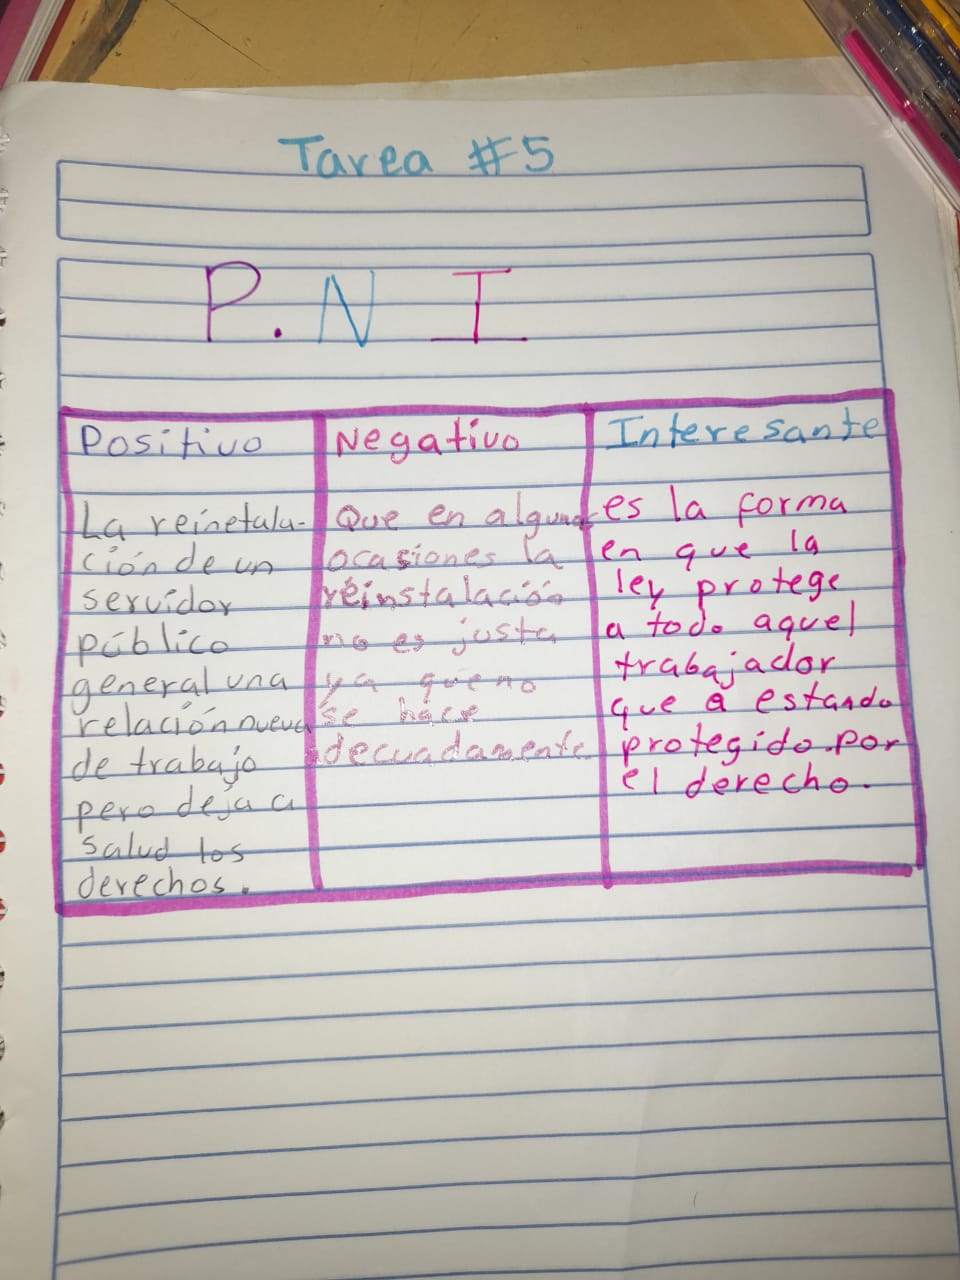 Tarea #5
P. N I
Positivo
La reinetala-
ción de un
servidor
público
general una
relación nueva
de trabajo
pero deja a
salud los
derechos.
Negativo
Que en algunas
ocasiones la
reinstalación
no es justa
ya que no
se hace
adecuadamente
Interesante
es la forma
en que la
ley protege
a todo aquel
trabajador
que a estando
protegido.por
el derecho.